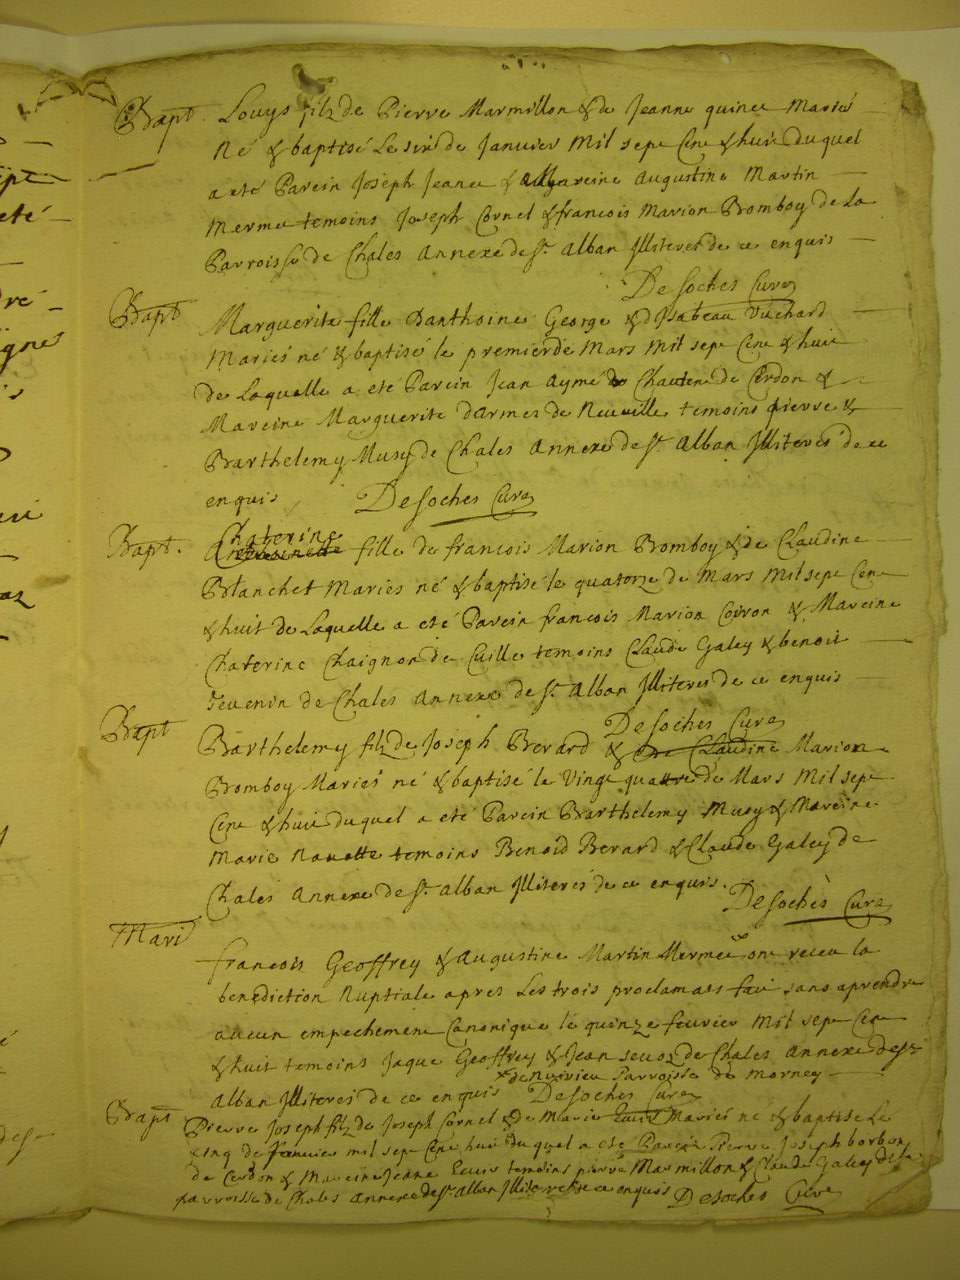 Bapt. Louys filz de Pierre Marmillon & de Jeanne quinet Mariés
Né & baptisé Le six de Janvier Mil sept Cent & huit duquel
a eté Parein Joseph Jeanet & Mareine Augustine Martin
Mermet temoins Joseph Cornel & francois Marion Bomboy de La
Parroisse de Chales Annexe de St. Alban Illiterés de ce enquis
Desoches Curé
Bapt Marguerite fille Danthoine George & d'Isabeau Vuchard
Mariés né & baptisé le premier de Mars Mil sept Cent & huit
de Laquelle a eté Parein Jean Aymé de Cerdon &
Mareine Marguerite d'Armes de Neuville temoins pierre &
Barthelemy Musy de Chales Annexe de St. Alban Illiterés de ce
enquis Desoches Curé
Bapt. Chaterine fille de francois Marion Bomboy & de Claudine
Blanchet Mariés né & baptisé le quatorze de Mars Mil sept Cent
& huit de Laquelle a eté Parein francois Marion Coiron & Mareine
Chaterine Chaignon de Cuille temoins Claude Galey & benoit
Tevenin de Chales Annexe de St. Alban Illiterés de ce enquis
Desoches Curé
Bapt Barthelemy filz de Joseph Berard & de Claudine Marion
Bomboy Mariés né & baptisé le Vingt quattre de Mars Mil sept
Cent & huit duquel a eté Parein Barthelemy Musy & Mareine
Marie Navette temoins Benoid Berard & Claude Galey de
Chales Annexe de St. Alban Illiterés de ce enquis.
Desoches Curé
Mari
francois Geoffrey & Augustine Martin Mermet ont receu la
benediction Nuptiale apres Les trois proclamats fait sans aprendre
aucun empechement Canonique le quinze fevrier Mil sept Cent
& huit temoins Jaque Geoffrey & Jean sevoz de Chales Annexe de St.
de Nurieu Parroisse de Mornay
Alban Illiterés de ce enquis Desoches Curé
Bapt Pierre Joseph filz de Joseph Cornel & de Marie Mariés né & baptisé Le
cinq de Janvier mil sept Cent huit duquel a eté Parein Pierre Joseph borbon
de Cerdon & Mareine Jeane temoins pierre Marmillon & Claude Galey de la
parroisse de Chales Annexe de St. Alban Illiterés de ce enquis Desoches Curé